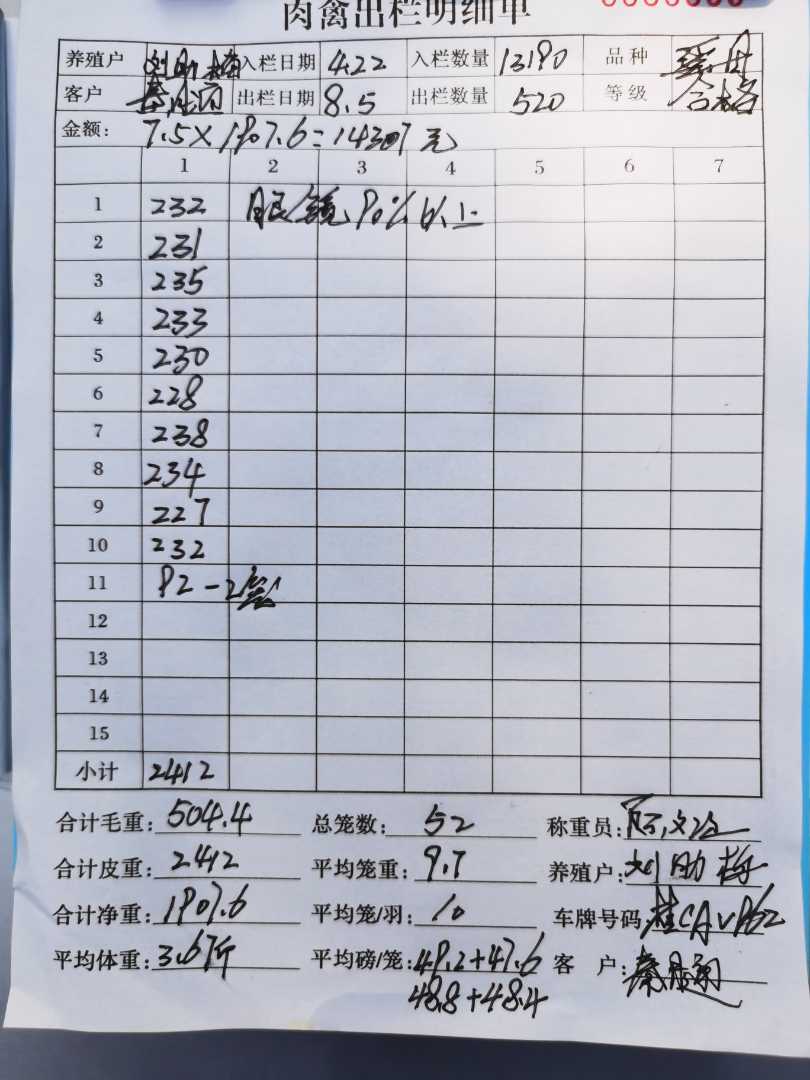 肉禽出栏明细单
养殖户 刘助梅 入栏日期 4.22 入栏数量 13190 品种
客户 出栏日期 8.5 出栏数量 520 等级 合格
金额: 7.5×1907.6=14307元
1 2 3 4 5 6 7
1 232 眼镜90%以上
2 231
3 235
4 233
5 230
6 228
7 238
8 234
9 227
10 232
11 92-2笼
12
13
14
15
小计 2412
合计毛重: 504.4 总笼数: 52 称重员:
合计皮重: 2412 平均笼重: 9.7 养殖户: 刘助梅
合计净重: 1907.6 平均笼/羽: 10 车牌号码:
平均体重: 3.67斤 平均磅/笼: 49.2+47.6 客户:
48.8+48.4